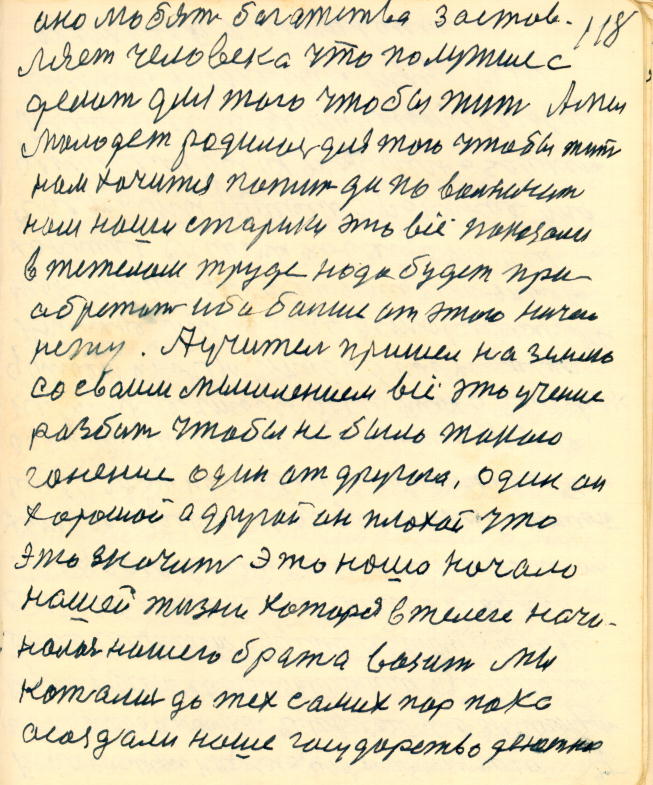 оно любят багатства застов-
118
ляет человека что получше с
делат для того чтобы жит А мы
молодеж родилас для того чтобы жит
нам хочится попит да по
нам наши старики это всё показали
в тежолом труде нодо будет при
обретат ибо болше от этого
. А учител пришел на землю
со сваим мышлением всё это учение
разбит чтобы не было такого
гонение один от другого, один он
хороший а другой он плохой что
это значит Это нашо начало
нашей жизни которая в телеге начи-
налас нашего брата возит Мы
котались до тех самих пор пока
осоздали наше государство